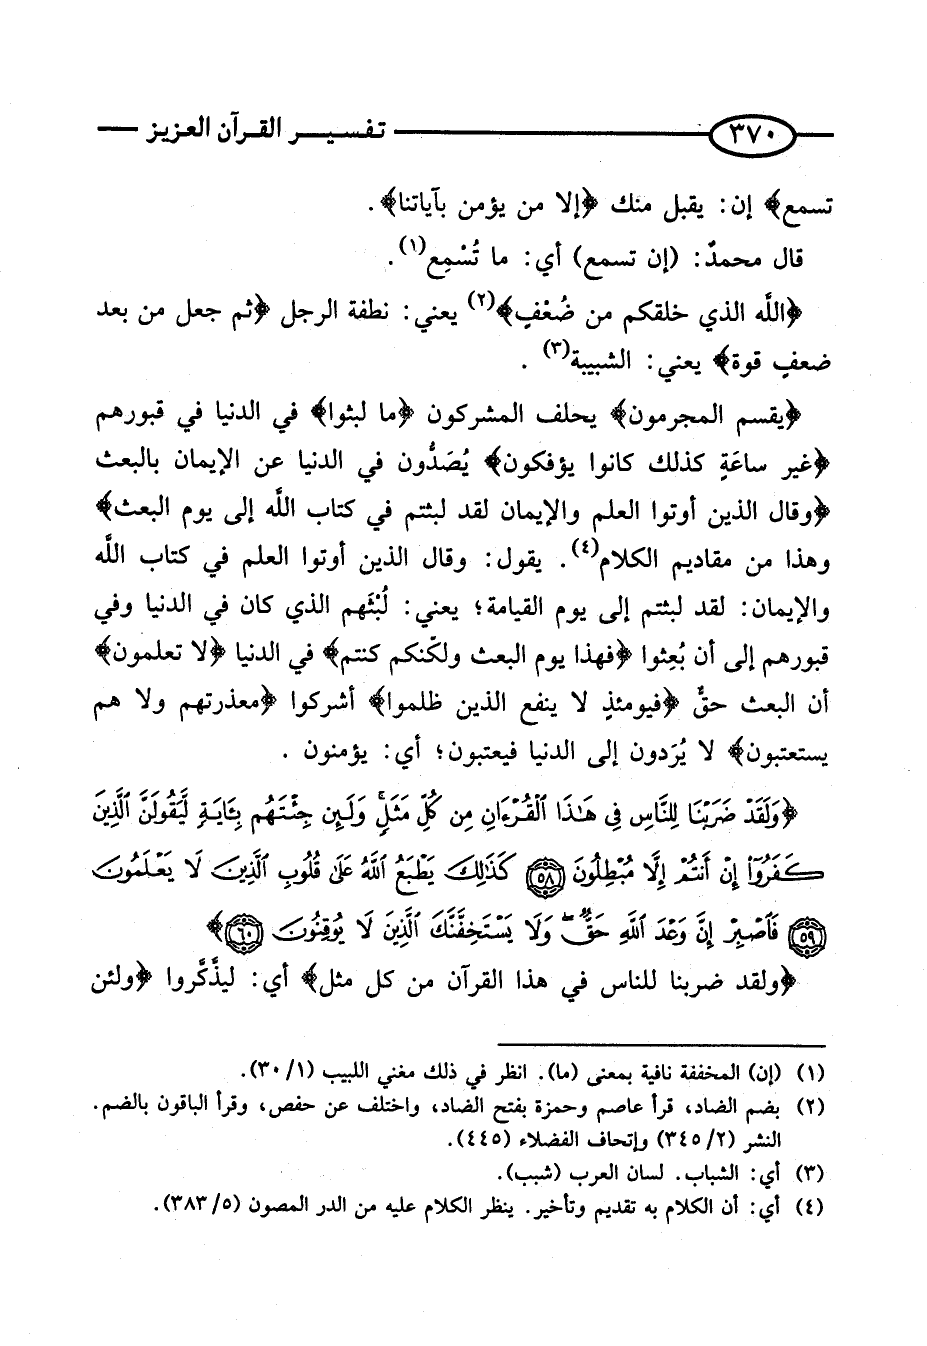 ٣٧٠ تفسير القرآن العزيز
تسمع﴾ إن: يقبل منك ﴿إلا من يؤمن بآياتنا﴾.
قال محمدٌ: (إن تسمع) أي: ما تُسْمِع(١).
﴿اللَّه الذي خلقكم من ضُعْفٍ﴾(٢) يعني: نطفة الرجل ﴿ثم جعل من بعد
ضعفٍ قوة﴾ يعني: الشبيبة(٣).
﴿يقسم المجرمون﴾ يحلف المشركون ﴿ما لبثوا﴾ في الدنيا في قبورهم
﴿غير ساعَةٍ كذلك كانوا يؤفكون﴾ يُصَدُّون في الدنيا عن الإيمان بالبعث
﴿وقال الذين أوتوا العلم والإيمان لقد لبثتم في كتاب اللَّه إلى يوم البعث﴾
وهذا من مقاديم الكلام(٤). يقول: وقال الذين أوتوا العلم في كتاب اللَّه
والإيمان: لقد لبثتم إلى يوم القيامة؛ يعني: لُبْثَهم الذي كان في الدنيا وفي
قبورهم إلى أن بُعِثوا ﴿فهذا يوم البعث ولكّنكم كنتم﴾ في الدنيا ﴿لا تعلمون﴾
أن البعث حقٌّ ﴿فيومئذٍ لا ينفع الذين ظلموا﴾ أشركوا ﴿معذرتهم ولا هم
يستعتبون﴾ لا يُرَدون إلى الدنيا فيعتبون؛ أي: يؤمنون.
﴿وَلَقَدْ ضَرَبْنَا لِلنَّاسِ فِي هَٰذَا ٱلْقُرْءَانِ مِن كُلِّ مَثَلٍۚ وَلَئِن جِئْتَهُم بِـَٔايَةٍ لَّيَقُولَنَّ ٱلَّذِينَ
كَفَرُوٓا۟ إِنْ أَنتُمْ إِلَّا مُبْطِلُونَ ٥٨ كَذَٰلِكَ يَطْبَعُ ٱللَّهُ عَلَىٰ قُلُوبِ ٱلَّذِينَ لَا يَعْلَمُونَ
٥٩ فَٱصْبِرْ إِنَّ وَعْدَ ٱللَّهِ حَقٌّۖ وَلَا يَسْتَخِفَّنَّكَ ٱلَّذِينَ لَا يُوقِنُونَ ٦٠﴾
﴿ولقد ضربنا للناس في هذا القرآن من كل مثل﴾ أي: ليذَّكَّروا ﴿ولئن
(١) (إن) المخففة نافية بمعنى (ما). انظر في ذلك مغني اللبيب (١/ ٣٠).
(٢) بضم الضاد، قرأ عاصم وحمزة بفتح الضاد، واختلف عن حفص، وقرأ الباقون بالضم.
النشر (٢/ ٣٤٥) وإتحاف الفضلاء (٤٤٥).
(٣) أي: الشباب. لسان العرب (شبب).
(٤) أي: أن الكلام به تقديم وتأخير. ينظر الكلام عليه من الدر المصون (٥/ ٣٨٣).